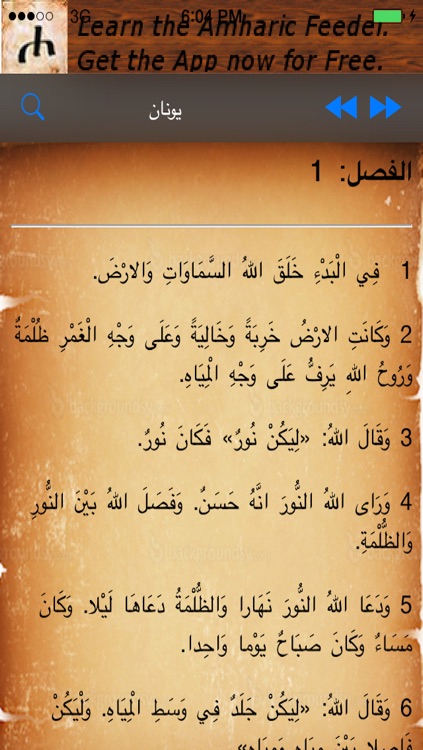 3G 6:04 PM
ሐ Learn the Amharic Feedel.
Get the App now for Free.
يونان
الفصل: 1
1 فِي الْبَدْءِ خَلَقَ اللهُ السَّمَاوَاتِ وَالارْضَ.
2 وَكَانَتِ الارْضُ خَرِبَةً وَخَالِيَةً وَعَلَى وَجْهِ الْغَمْرِ ظُلْمَةٌ
وَرُوحُ اللهِ يَرِفُّ عَلَى وَجْهِ الْمِيَاهِ.
3 وَقَالَ اللهُ: «لِيَكُنْ نُورٌ» فَكَانَ نُورٌ.
4 وَرَاى اللهُ النُّورَ انَّهُ حَسَنٌ. وَفَصَلَ اللهُ بَيْنَ النُّورِ
وَالظُّلْمَةِ.
5 وَدَعَا اللهُ النُّورَ نَهَارا وَالظُّلْمَةُ دَعَاهَا لَيْلا. وَكَانَ
مَسَاءٌ وَكَانَ صَبَاحٌ يَوْما وَاحِدا.
6 وَقَالَ اللهُ: «لِيَكُنْ جَلَدٌ فِي وَسَطِ الْمِيَاهِ. وَلْيَكُنْ